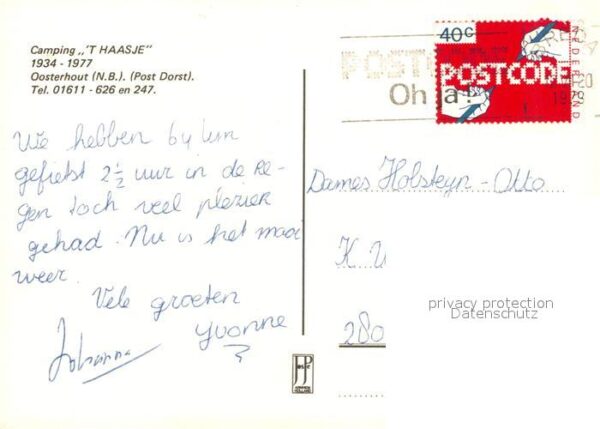 Camping „'T HAASJE"
1934 - 1977
Oosterhout (N.B.). (Post Dorst).
Tel. 01611 - 626 en 247.
We hebben
gefietst 2½ uur in de Re-
gen toch veel plezier
gehad. Nu is het mooi
weer.
Vele groeten
Yvonne
Johanna
40c
NEDERLAND
POSTCODE
POSTCODE
Oh ja!
1979
Dames Holsteyn - Otto
K. W
280
privacy protection
Datenschutz